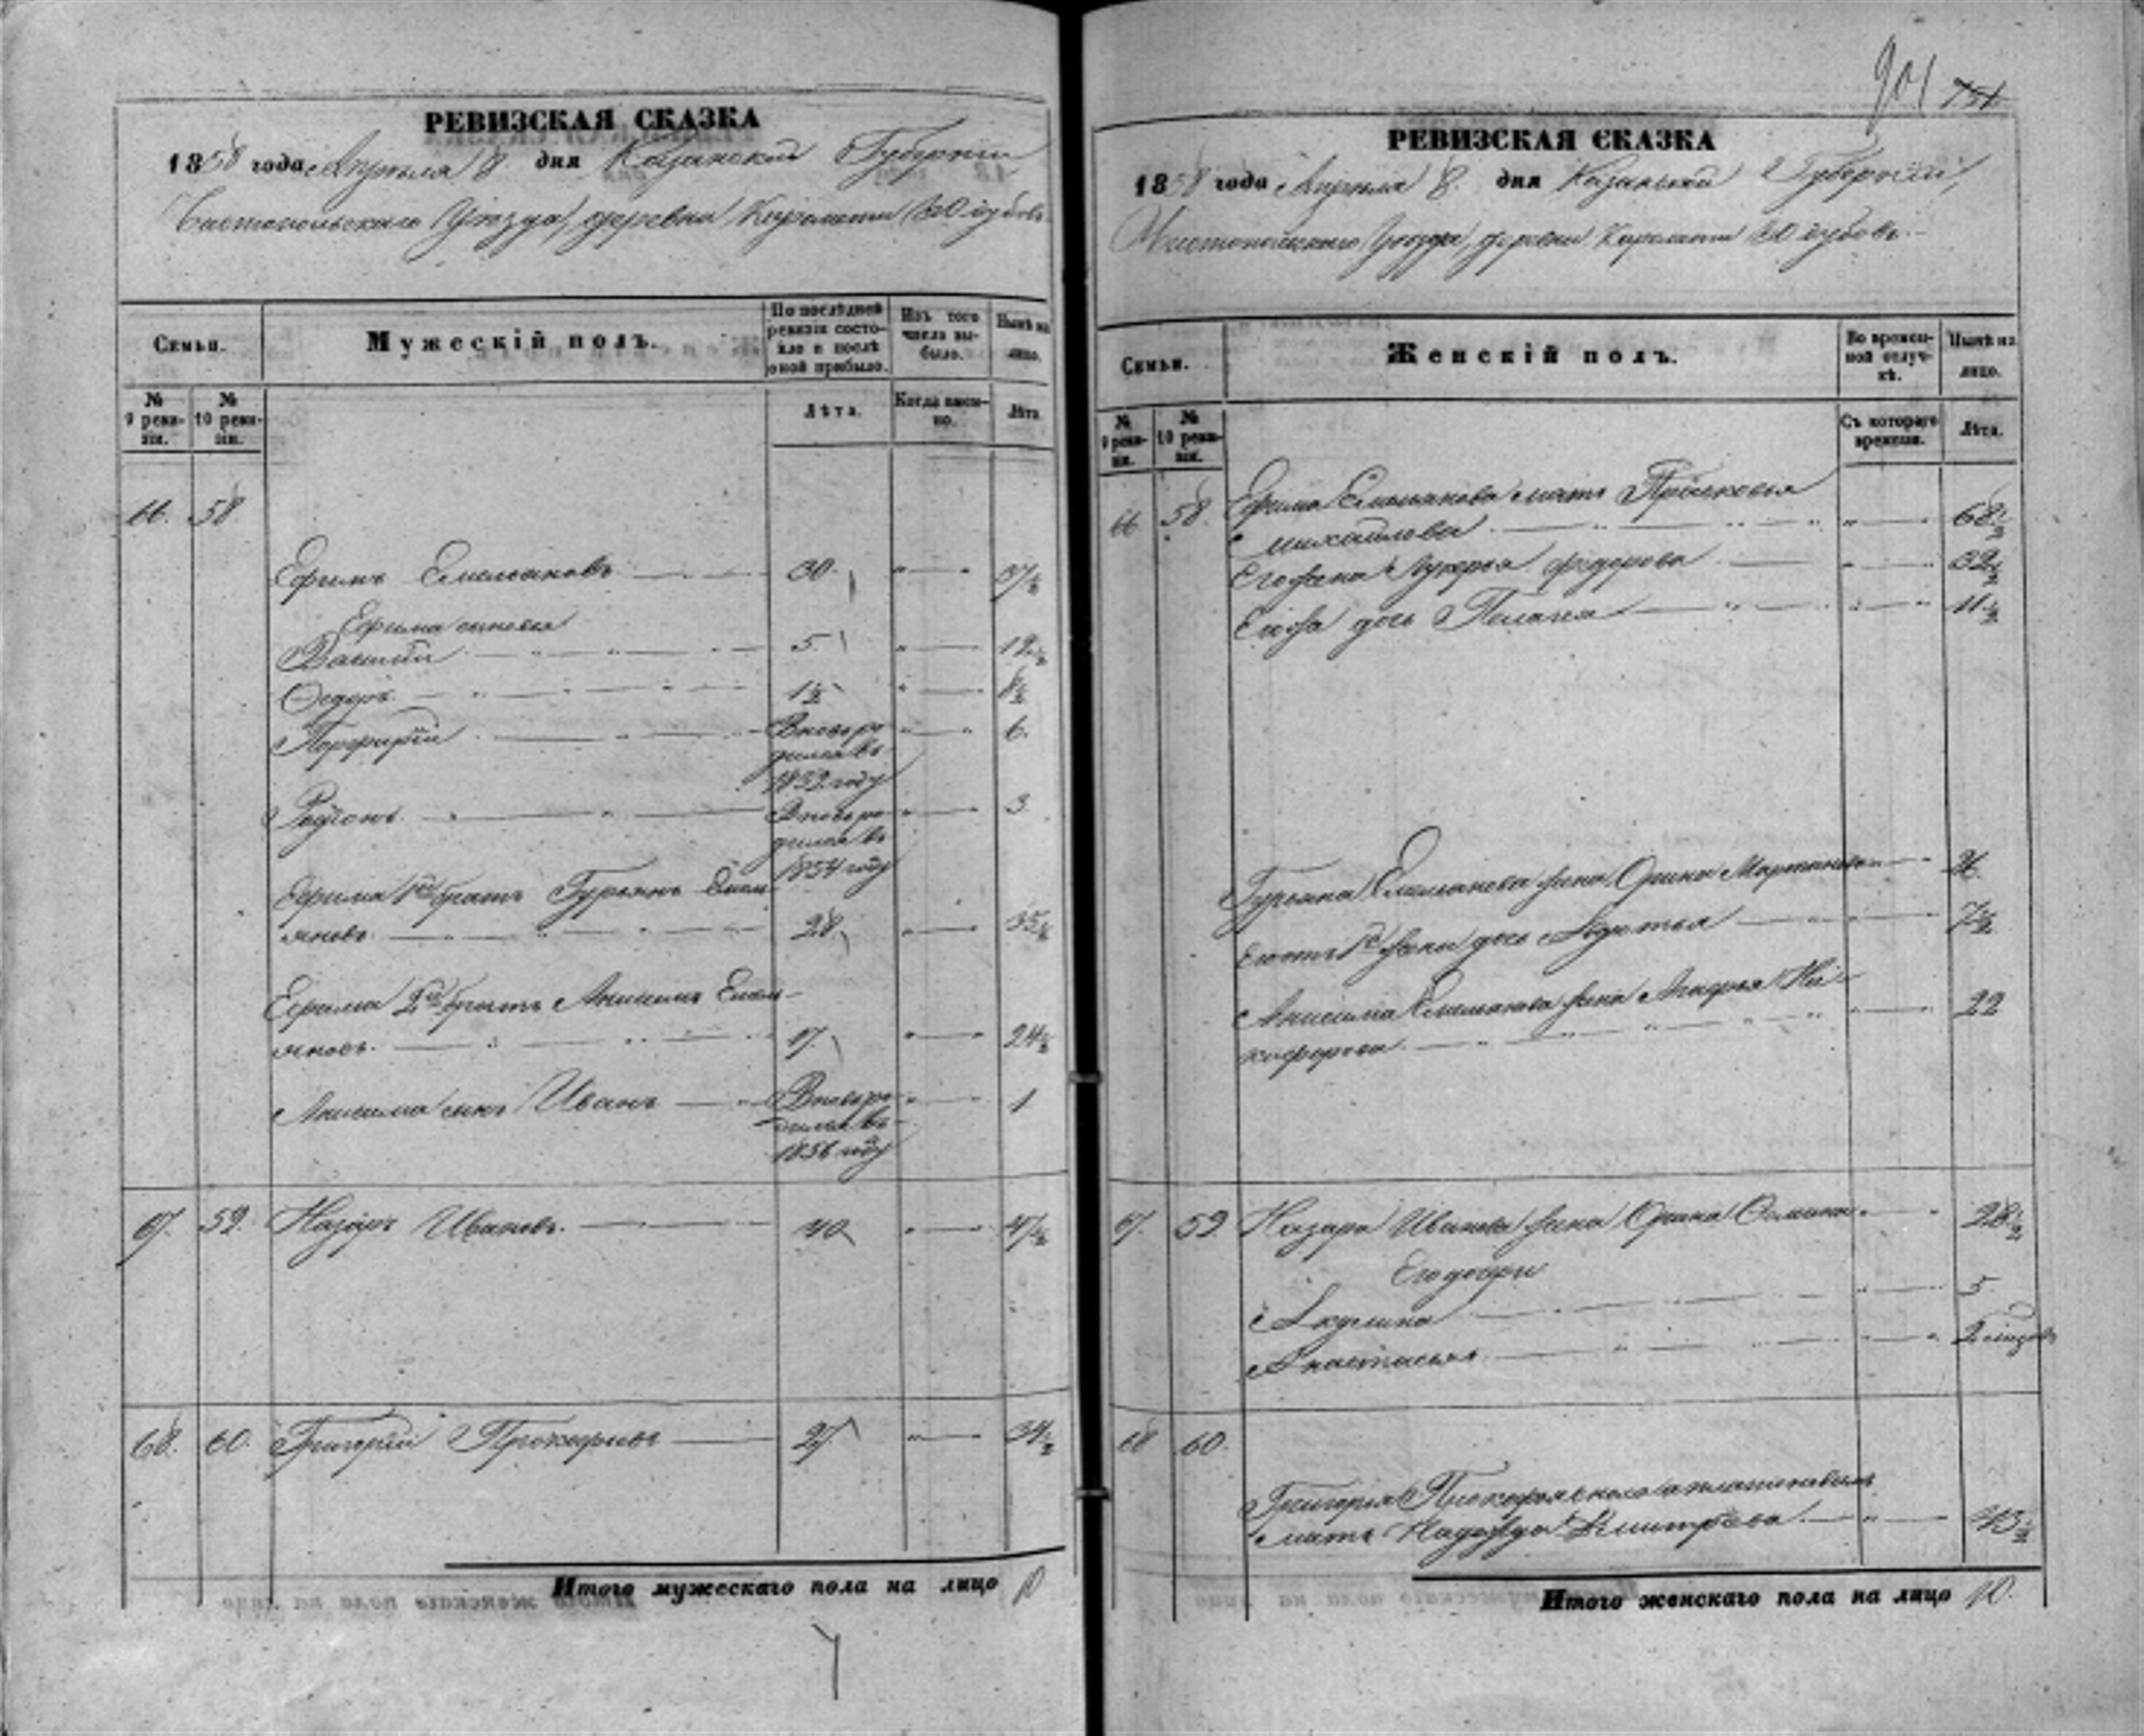 РЕВИЗСКАЯ СКАЗКА
1858 года Апреля 8 дня Казанской Губернии
Чистопольскаго Уѣзда, деревни Киремети
Семьи.
Мужескій полъ.
По послѣдней ревизіи состояло и послѣ оной прибыло.
Изъ того числа выбыло.
Нынѣ на лицо.
№ 9 ревизіи.
№ 10 ревизіи.
Лѣта.
Когда именно.
Лѣта
66. 58
Ефимъ Емельяновъ 30 37½
Ефима сыновья
Василій 5 12½
Ѳедоръ 1½ 8½
Порфирій Вновь родился въ 1852 году 6.
Родіонъ Вновь родился въ 1854 году 3
Ефима 1й братъ Гурьянъ Емель-
яновъ 28 35½
Ефима 2й братъ Анисимъ Емель-
яновъ 17 24½
Анисима сынъ Иванъ Вновь родился въ 1856 году 1
67. 59. Назаръ Ивановъ 40 47½
68. 60. Григорій Прокофьевъ 27 34½
Итого мужескаго пола на лицо 10
901 751
РЕВИЗСКАЯ СКАЗКА
1858 года Апреля 8. дня Казанской Губерніи,
Чистопольскаго Уѣзда, деревни Киремети
Семьи.
Женскій полъ.
Во временной отлучкѣ.
Нынѣ на лицо.
№ 9 ревизіи.
№ 10 ревизіи.
Съ котораго времени.
Лѣта.
66 58. Ефима Емельянова мать Прасковья
Михайлова 68½
Его жена Лукерья Федорова 32½
Его дочь Пелагея 11½
Гурьяна Емельянова жена Орина Мартынова 26
Его отъ 1й жены дочь Авдотья 7½
Анисима Емельянова жена Агафья Ни-
кифорова 22
67. 59 Назара Иванова жена Орина 28½
Его дочери
Акулина 5
Анастасья 2 мѣсяцовъ
68 60.
Григорья Прокофьева
мать Надежда Дмитрева 43½
Итого женскаго пола на лицо 10.